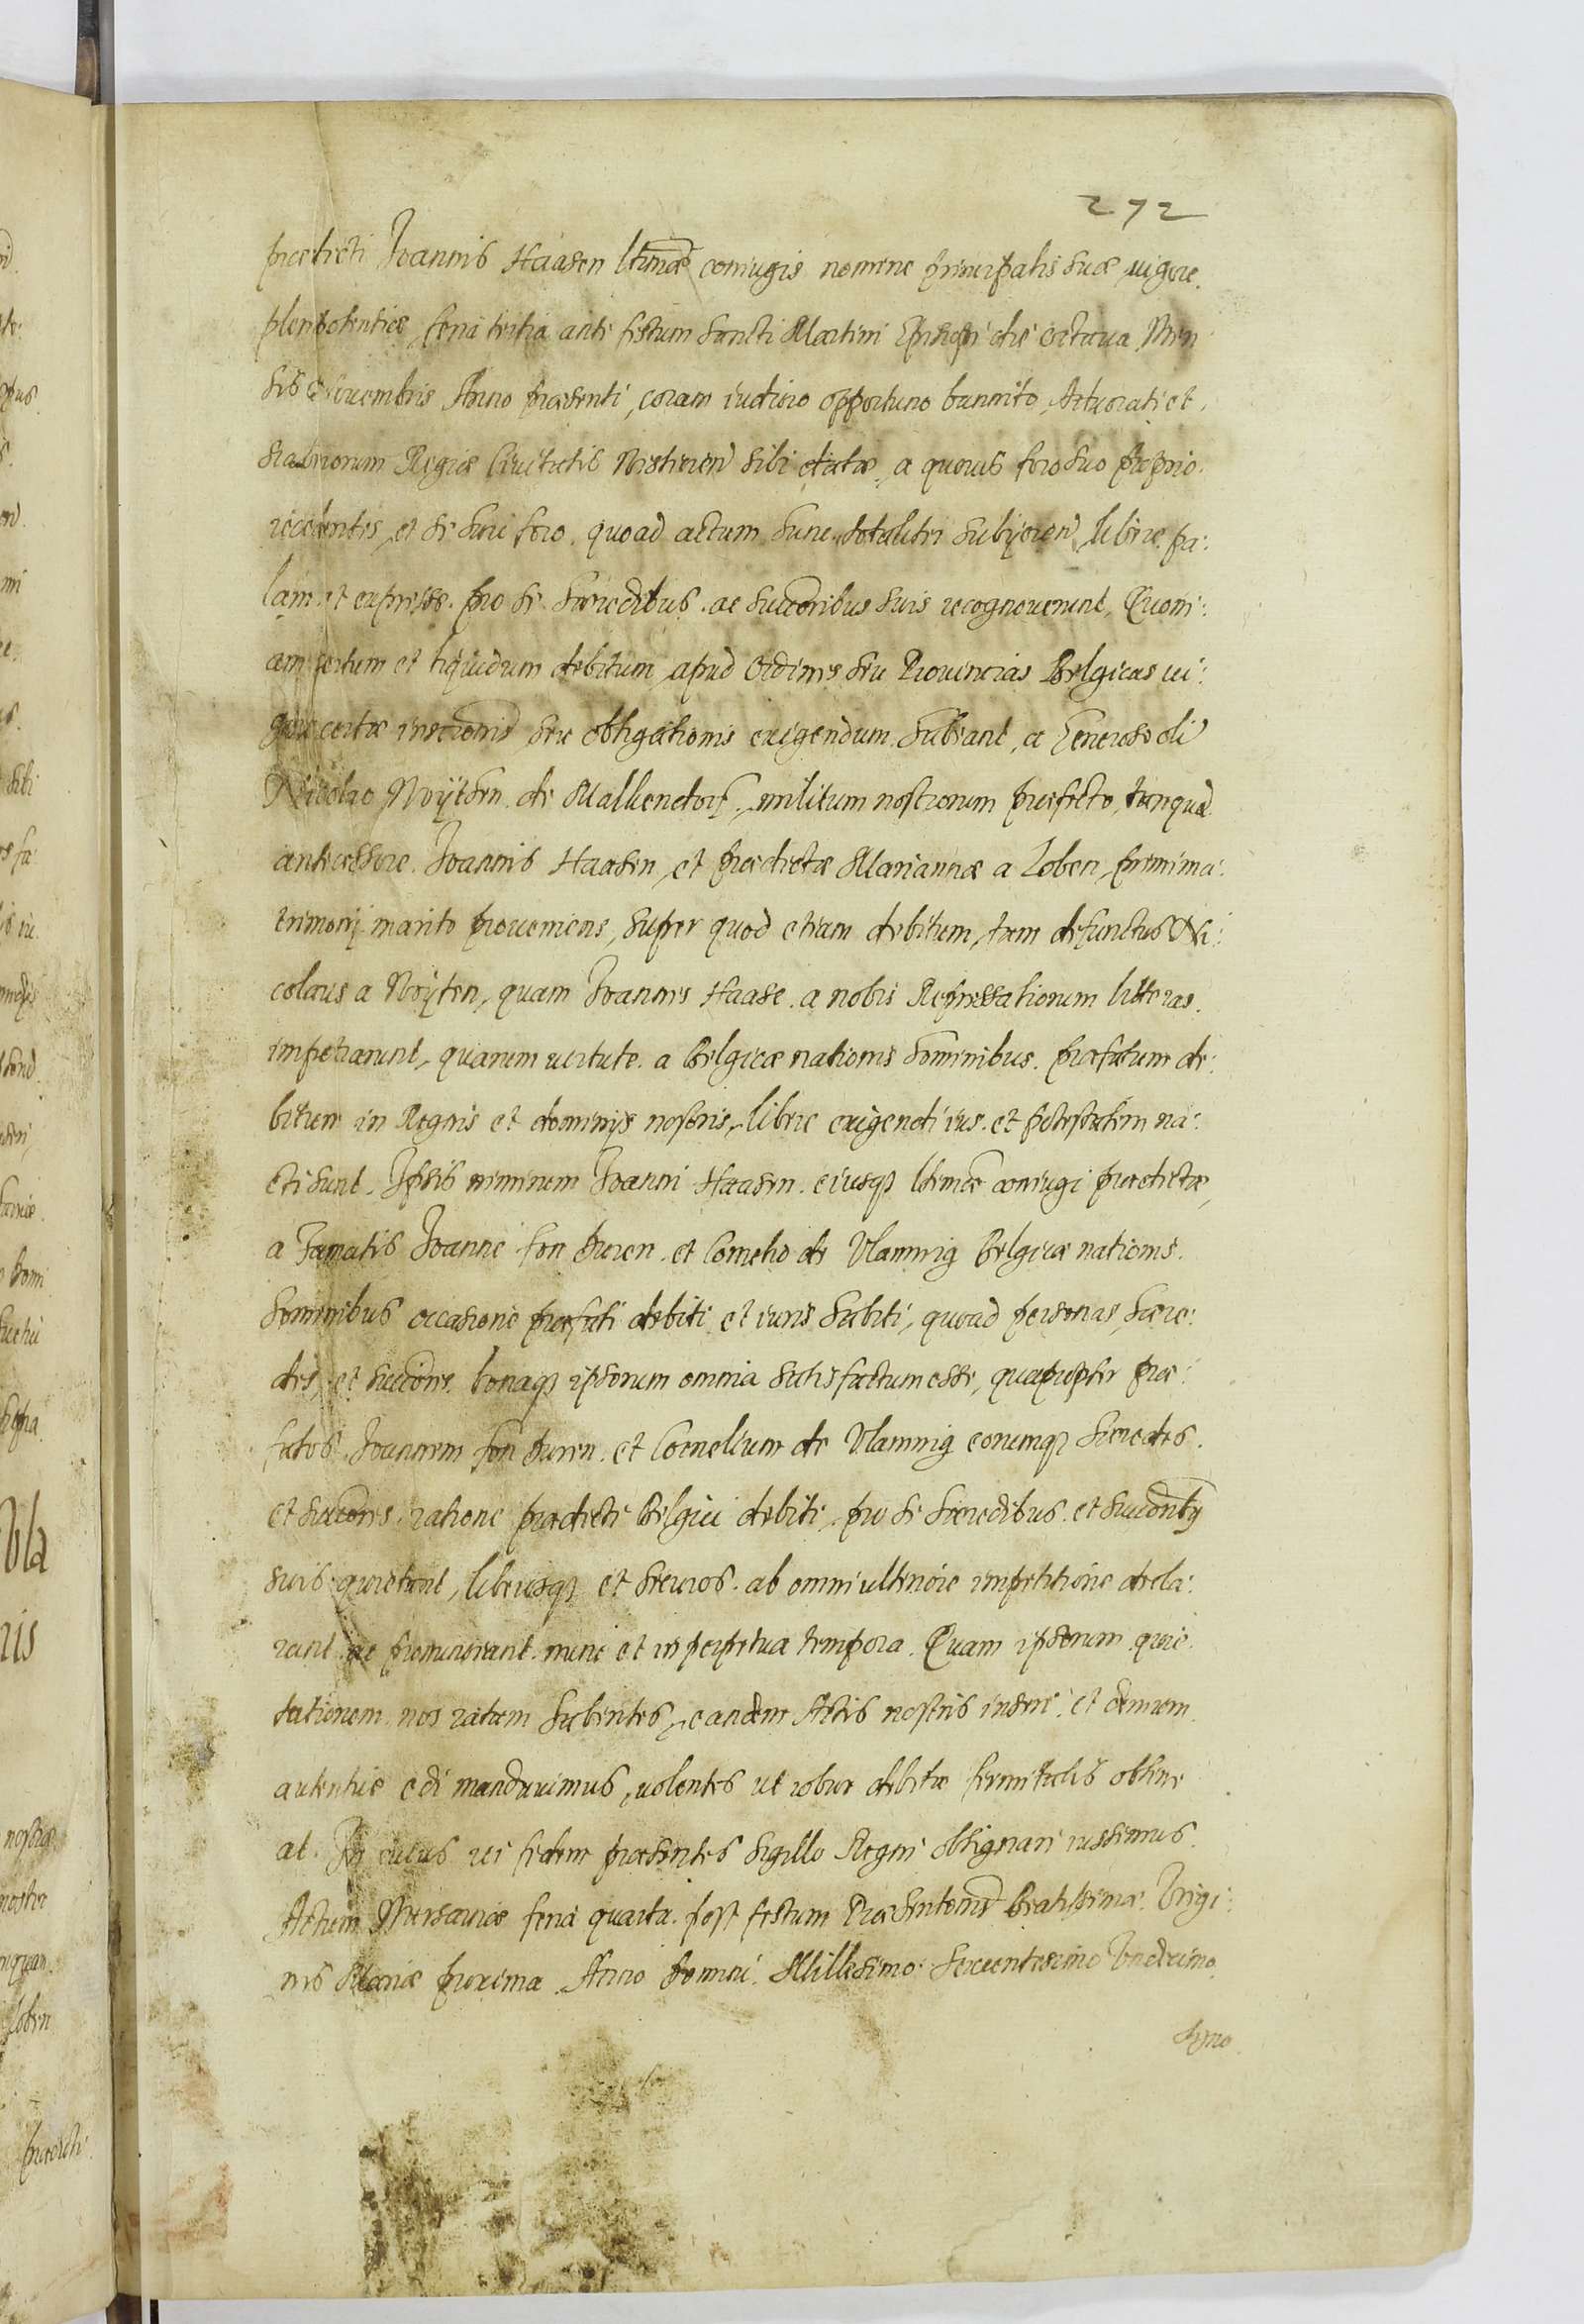 272
prædicti Joannis Haasen ltimæ coniugis nomine principalis suæ uigore
plenipotentiæ feria tertia ante festum Sancti Martini Episcopi die octaua Men
sis Nouembris Anno præsenti, coram iudicio opportuno bannito Aduocati et
Scabinorum Regiæ Ciuitatis sibi a quouis foro suo proprio
recedentes, et se huic foro quoad actum hunc totaliter subijcien libere pa:
lam et expresse pro se hæredibus ac succoribus suis recognouerunt, Quoni:
am certum et liquidum debitum apud Ordines seu Prouincias Belgicas ui:
gore certæ seu obligationis exigendum habeant, a Generoso oli
Nicolao Noyten de Malkendorf militum nostrorum præfecto, tanquam
antecessore Joannis Haasen et prædictæ Mariannæ a Loben primi ma:
trimonij marito proueniens, super quod etiam debitum, tam defunctus Ni:
colaus a Noyten, quam Joannes Haase a nobis Repressaliorum litteras
impetrarunt, quarum uirtute a Belgicæ nationis hominibus præfatum de:
bitum in Regnis et dominijs nostris, libere exigendi ius et potestatem na:
cti sunt. Ipsis nimirum Joanni Haasen eiusq ltimæ coniugi prædictæ,
a Famatis Joanne fon Buren et Cornelio de Vlamnig Belgicæ nationis
hominibus occasione præfati debiti et iuris habiti, quoad personas, hære:
des, et succores bonaq ipsorum omnia satisfactum esse, quapropter præ:
fatos Joannem fon Buren et Cornelium de Vlamnig eorumq hæredes
et succores ratione prædicti Belgici debiti pro se hæredibus et succoribq
suis quietant, liberosq et securos ab omni ulteriore impetitione decla:
rant ac pronunciant nunc et in perpetua tempora. Quam ipsorum quie
tationem nos ratam habentes, eandem Actis nostris inseri et demum
autentice edi mandauimus, uolentes ut robur debitæ firmitatis obtine
at. In cuius rei fidem præsentes Sigillo Regni obsignari iussimus.
Actum Warsauiæ feria quarta post festum Præsentonis Beatissimæ Virgi:
nis Mariæ proxima Anno Domini Millesimo Sexcentesimo Vndecimo